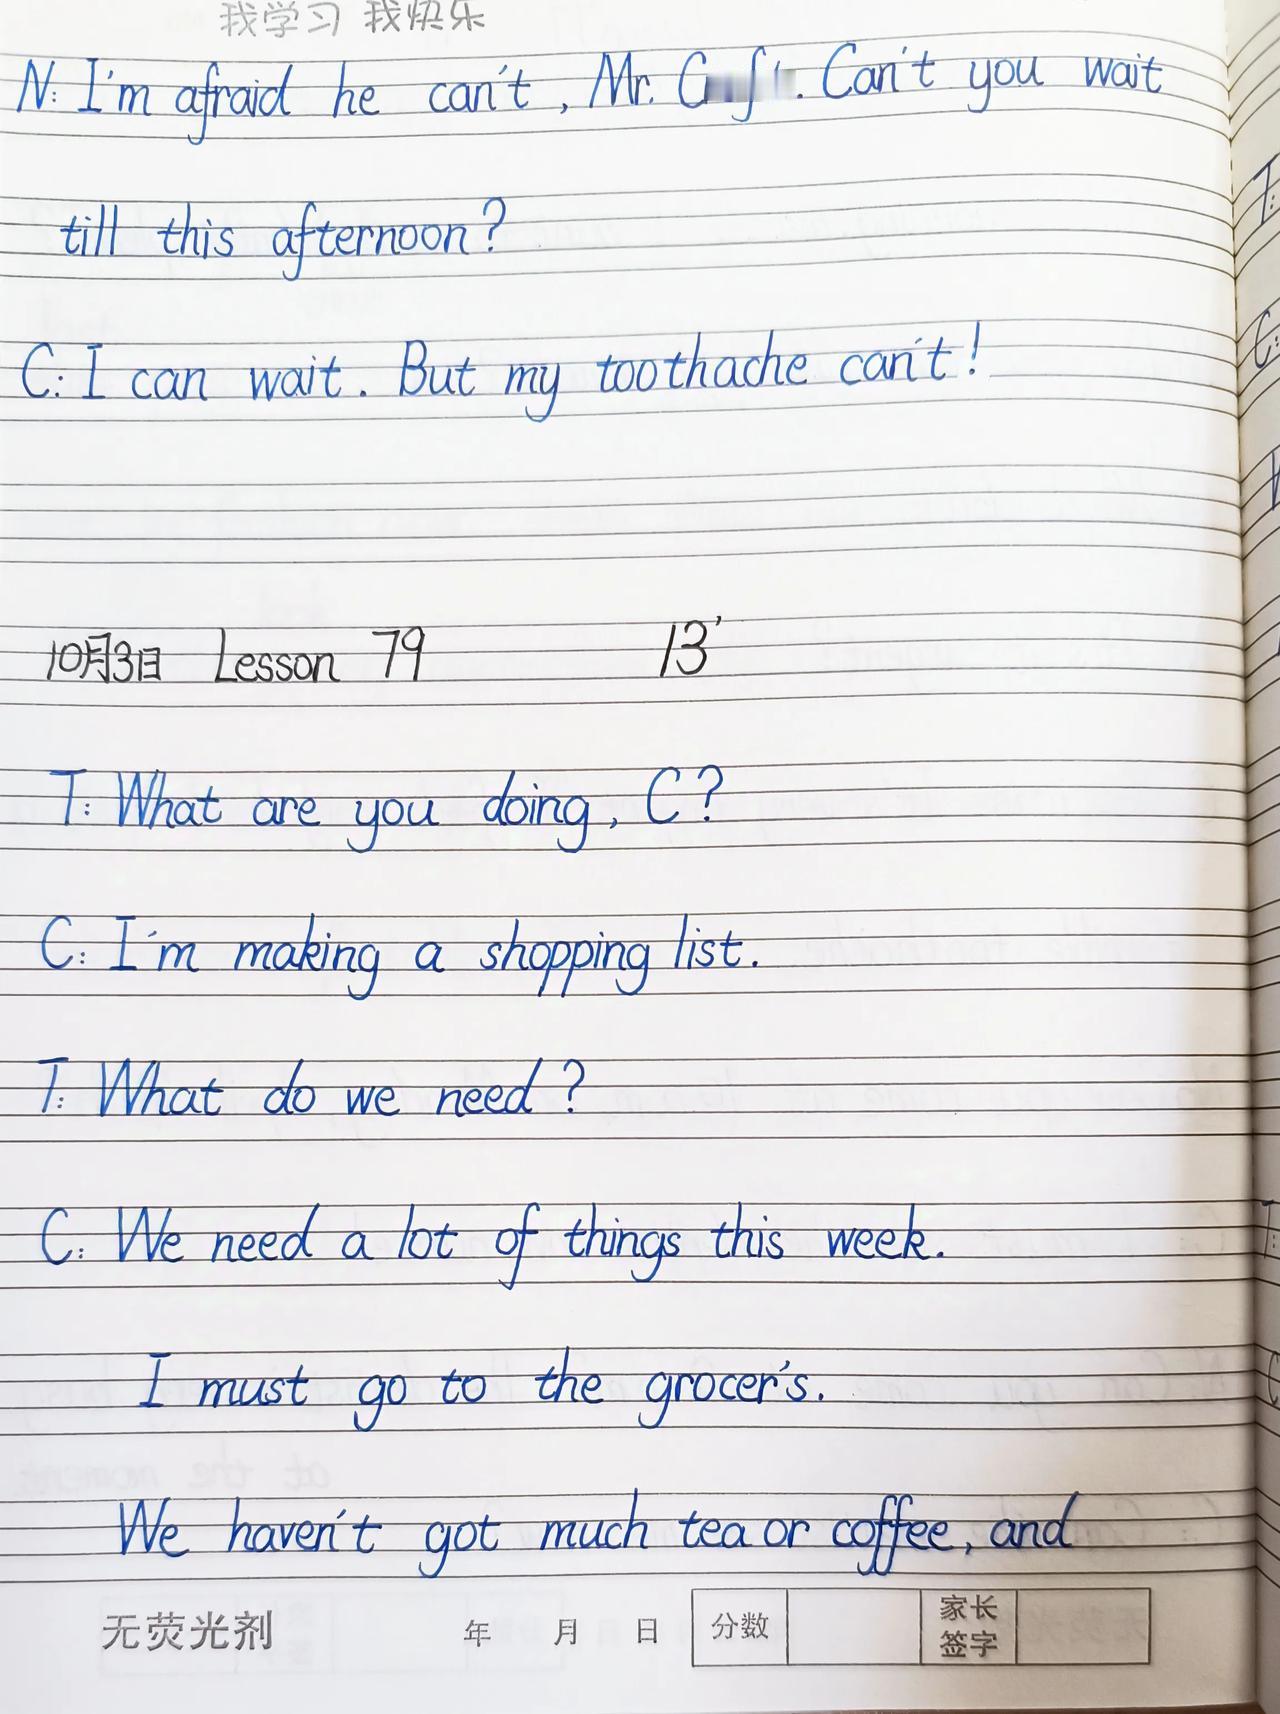 我学习 我快乐
N: I'm afraid he can't, Mr. Can't you wait
till this afternoon?
C: I can wait. But my toothache can't!
10月3日 Lesson 79 13'
T: What are you doing, C?
C: I'm making a shopping list.
T: What do we need?
C: We need a lot of things this week.
I must go to the grocer's.
We haven't got much tea or coffee, and
无荧光剂 年 月 日 分数 家长签字